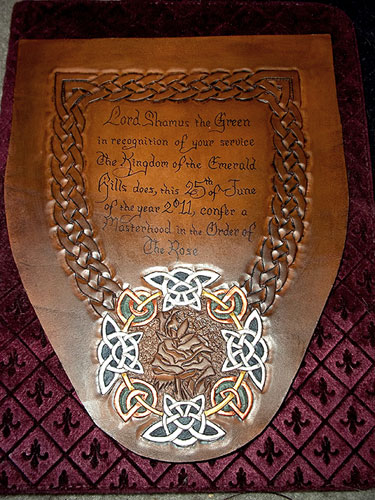 Lord Shamus the Green
in recognition of your service
The Kingdom of the Emerald
Hills does, this 25th of June
of the year 2011, confer a
Masterhood in the Order of
The Rose